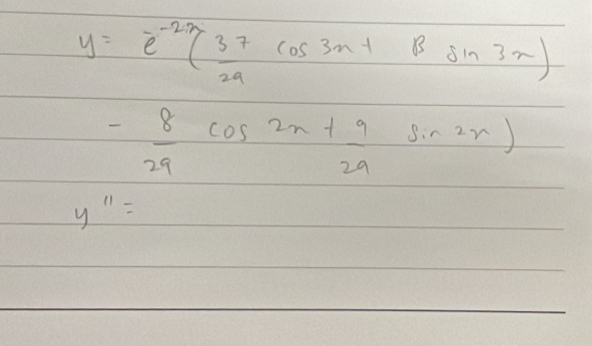 y = e^{-2x} ( 37/29 cos 3x + B sin 3x )
- 8/29 cos 2x + 9/29 sin 2x )
y'' =